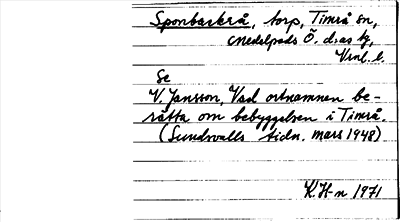 Sponbackrå, torp, Timrå sn,
Medelpads Ö. d:as tg,
Vrnl. l.
Se
V. Jansson, Vad ortnamnen be-
rätta om bebyggelsen i Timrå.
(Sundsvalls tidn. mars 1948)
K. H-n 1971